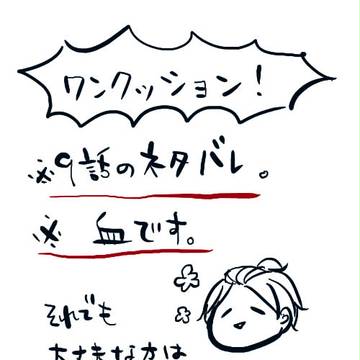 ワンクッション！
※9話のネタバレ。
※ 血です。
それでも
大丈夫なかたは